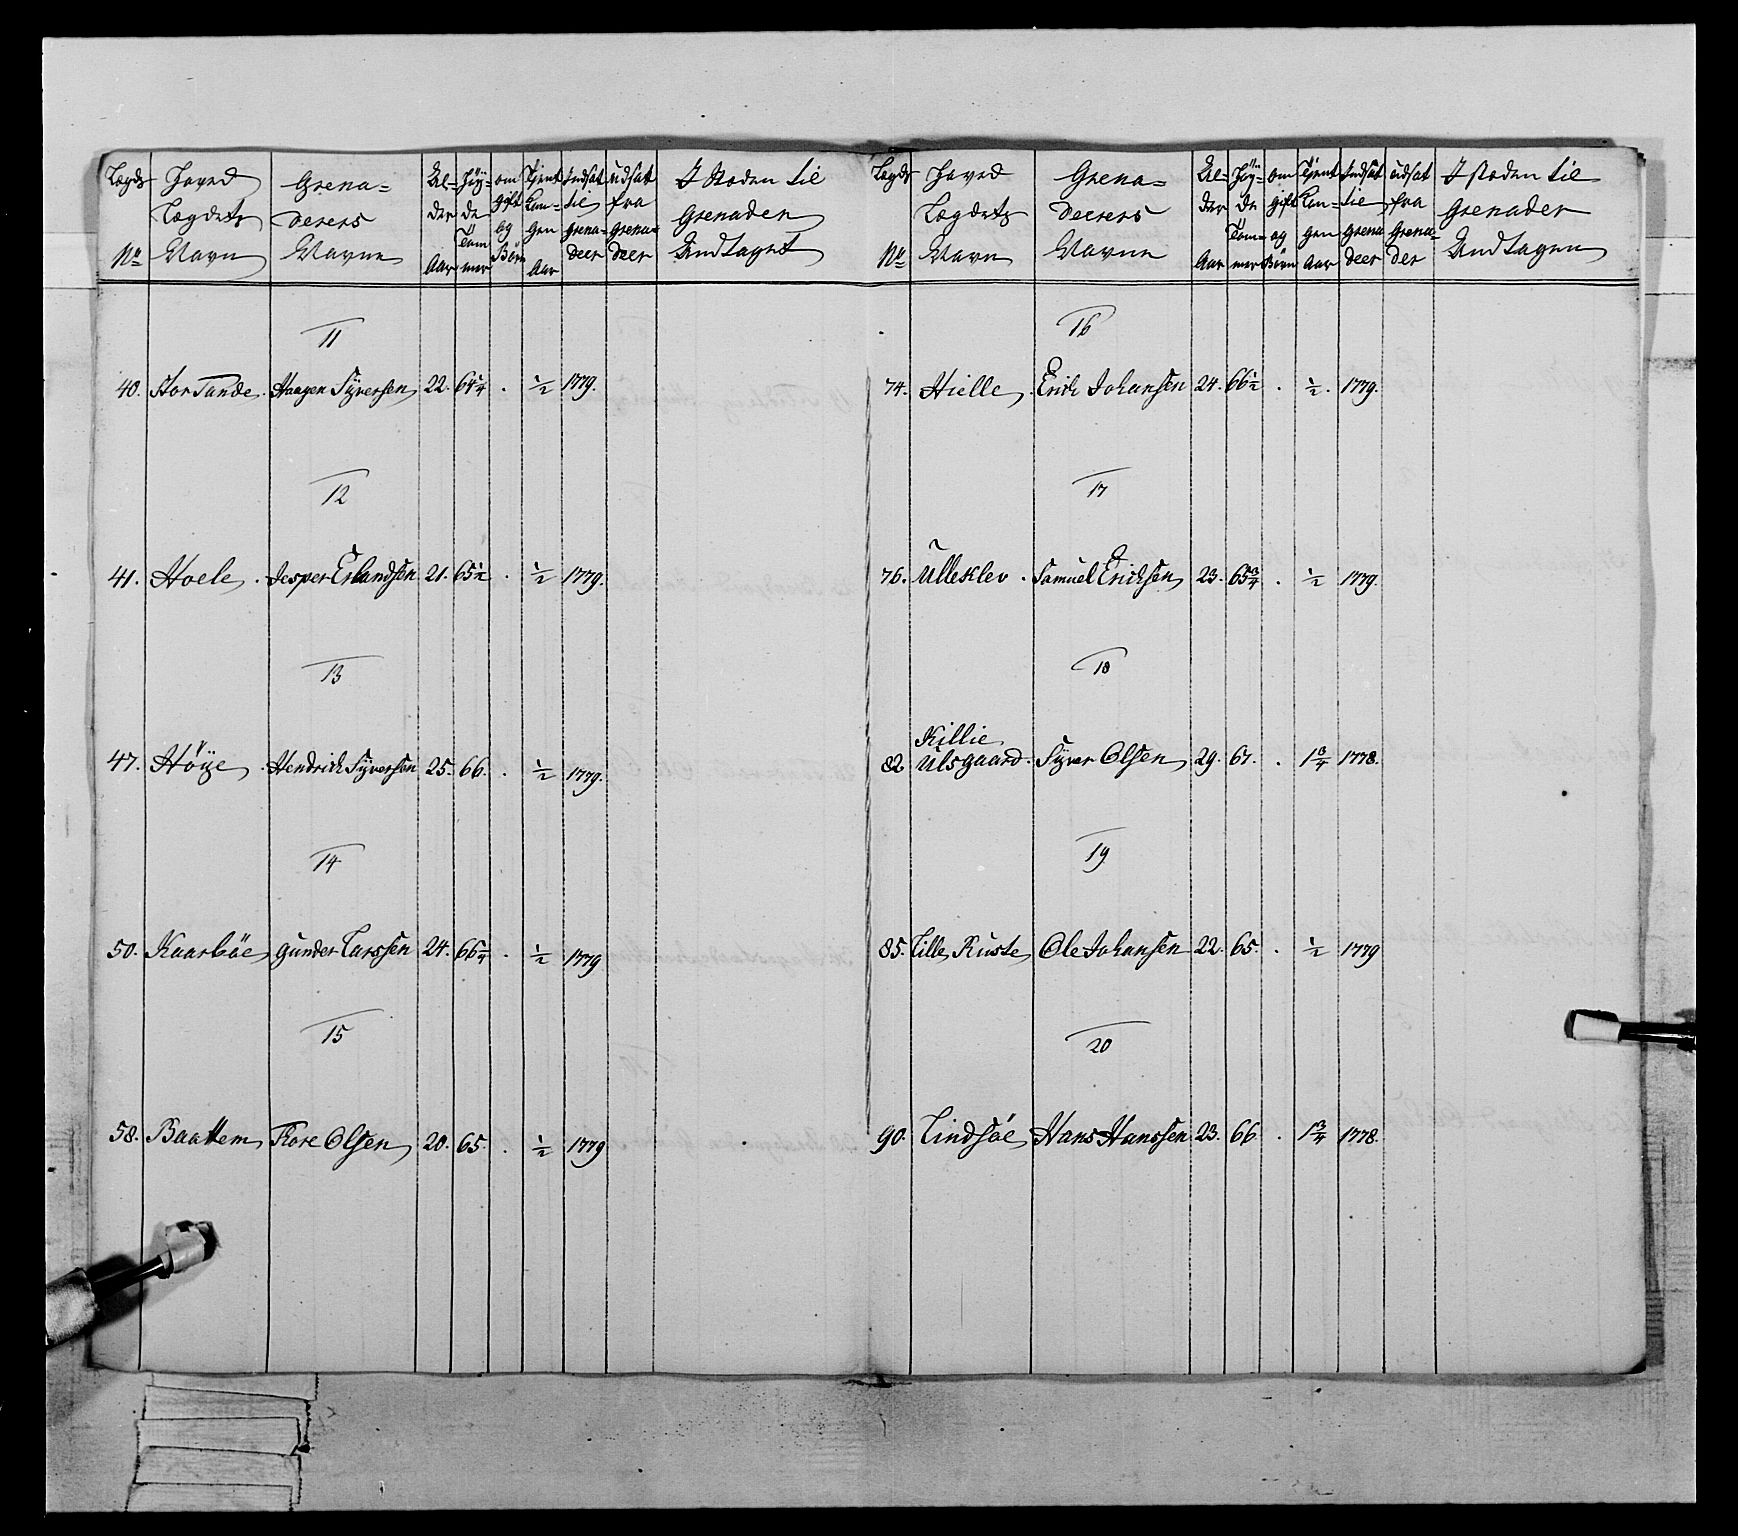 Lægds No | Hoved Lægdets Navn | Grenaderers Navne | Alder Aar | Høyde Tommer | om gift og Børn | Tient Kongen Aar | Indsat til Grenadeer | udsat fra Grenadeer | I Steden til Grenader Andtaget
11
40. Stor Sande. Haagen Syversen 22. 64 1/4 . 1/2 1779.
12
41. Hoele. Jesper Erlandsen 21. 65 1/2 . 1/2 1779.
13
47. Höÿe. Hendrich Syversen 25. 66. . 1/2 1779.
14
50. Kaarböe Gunder Larssen 24. 66 1/4 . 1/2 1779
15
58. Baattem Tore Olsen 20. 65. . 1/2 1779
Lægds No | Hoved Lægdets Navn | Grenadeerers Navne | Alder Aar | Høyde Tommer | om gift og Børn | Tient Kongen Aar | Indsat til Grenadeer | udsat fra Grenader | I steden til Grenader Andtagen
16
74. Hielle. Erich Johansen 24. 66 1/2 . 1/2. 1779.
17
76. Ulleklev. Samuel Erichsen 23. 65 3/4 . 1/2 1779.
18
Killie
82 Ulsgaard. Syver Olsen 29. 67. . 1 3/4 1778.
19
85. Lille Ruste Ole Johansen 22. 65. . 1/2 1779
20
90. Lindsöe Hans Hanssen 23. 66 . 1 3/4 1778.